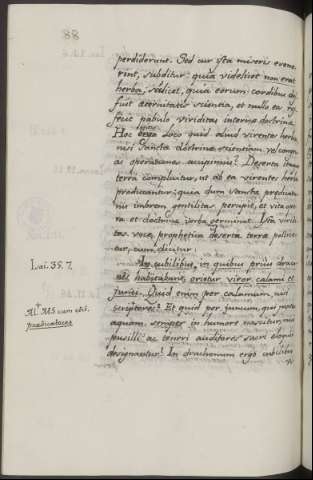 88
perdiderunt. Sed cur ista miseris evene-
rint, subditur: quia videlicet non erat
herba; scilicet, quia eorum cordibus de-
fuit aeternitatis scientia, et nulla ea re-
fecit pabulo viriditas internae doctrinae.
Hoc ergo loco quid aliud virentes herbas
nisi Sanctae doctrinae scientiam vel congru-
as operationes accipimus? Deserta itaque
terra compluitur, ut ab ea virentes herbae
producantur; quia dum sanctae praedicatio-
nis imbrem gentilitas percepit, et vitae ope-
ra et doctrinae verba germinat. Ista viridi-
tas voce prophetica deserta terrae pollice-
tur, cum dicitur:
In cubilibus, in quibus prius draco-
nes habitabant, orietur viror calami et
junci. Quid enim per calamum, nisi
scriptores? Et quid per juncum, qui juxta
aquam, semper in humore nascitur, nisi
pusilli ac teneri auditores sacri eloquii
designantur? In draconum ergo cubilibus
Isai. 35. 7.
Al. MS. cum edit.
praedicatores